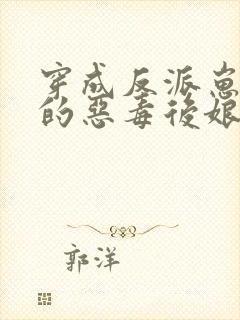 穿成反派崽
的惡毒後娘
郭洋